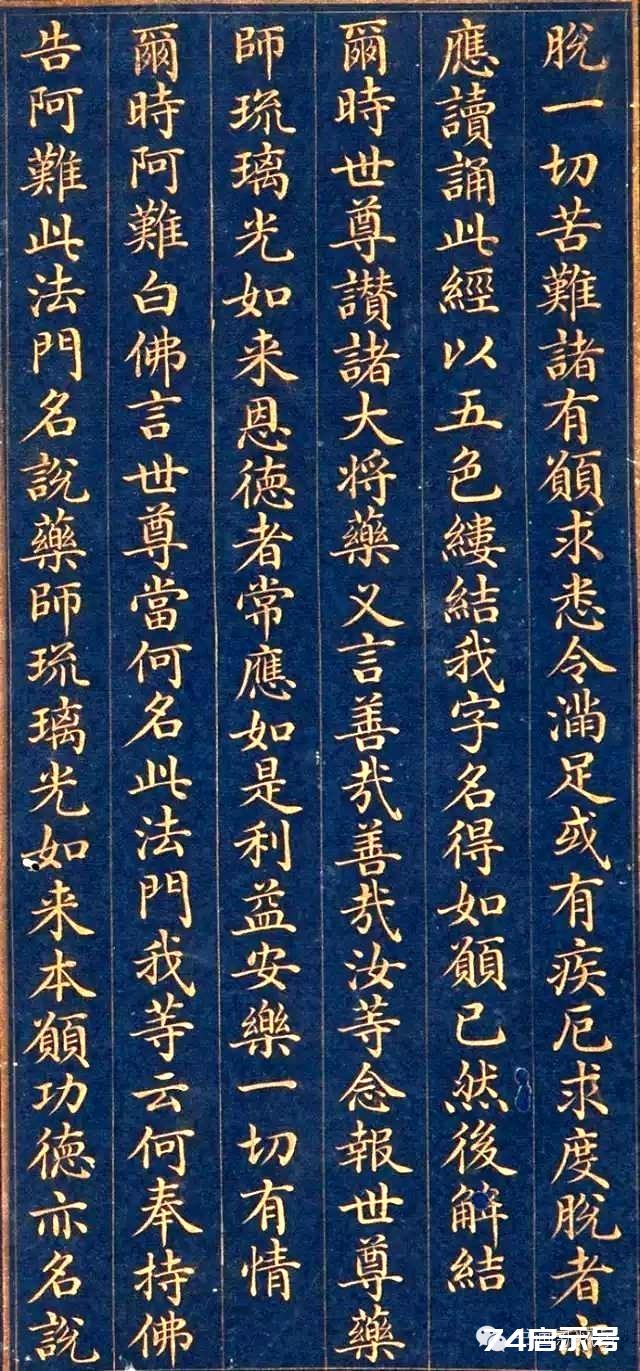 脫一切苦難諸有願求悉令滿足或有疾厄求度脫者亦
應讀誦此經以五色縷結我字名得如願已然後解結
爾時世尊讃諸大将藥叉言善哉善哉汝等念報世尊藥
師琉璃光如来恩徳者常應如是利益安樂一切有情
爾時阿難白佛言世尊當何名此法門我等云何奉持佛
告阿難此法門名說藥師琉璃光如来本願功德亦名說
74启示号